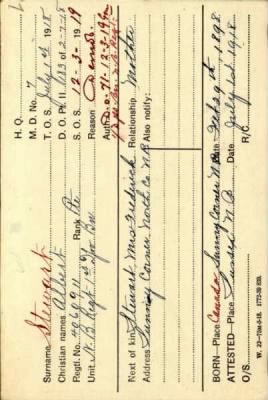 H. Q.
M. D. No. 7
Surname Stewart
T. O. S. July 1st 1918
Christian names Albert
D. O. Pt. II 183 of 2-7-18
Regtl No. 4060911 Rank Pte
S. O. S. 12-3-1919
Unit N. B. Regt 1st
Reason Demob.
Auth D.O. 71-12-3-19
Next of kin Stewart Mrs Frederick Relationship Mother
Address Sunny Corner North Co N.B. Also notify:
BORN—Place Canada Sunny Corner N.B. Date 1898
ATTESTED—Place Sussex N.B. Date July 1st 1918
O/S R/C